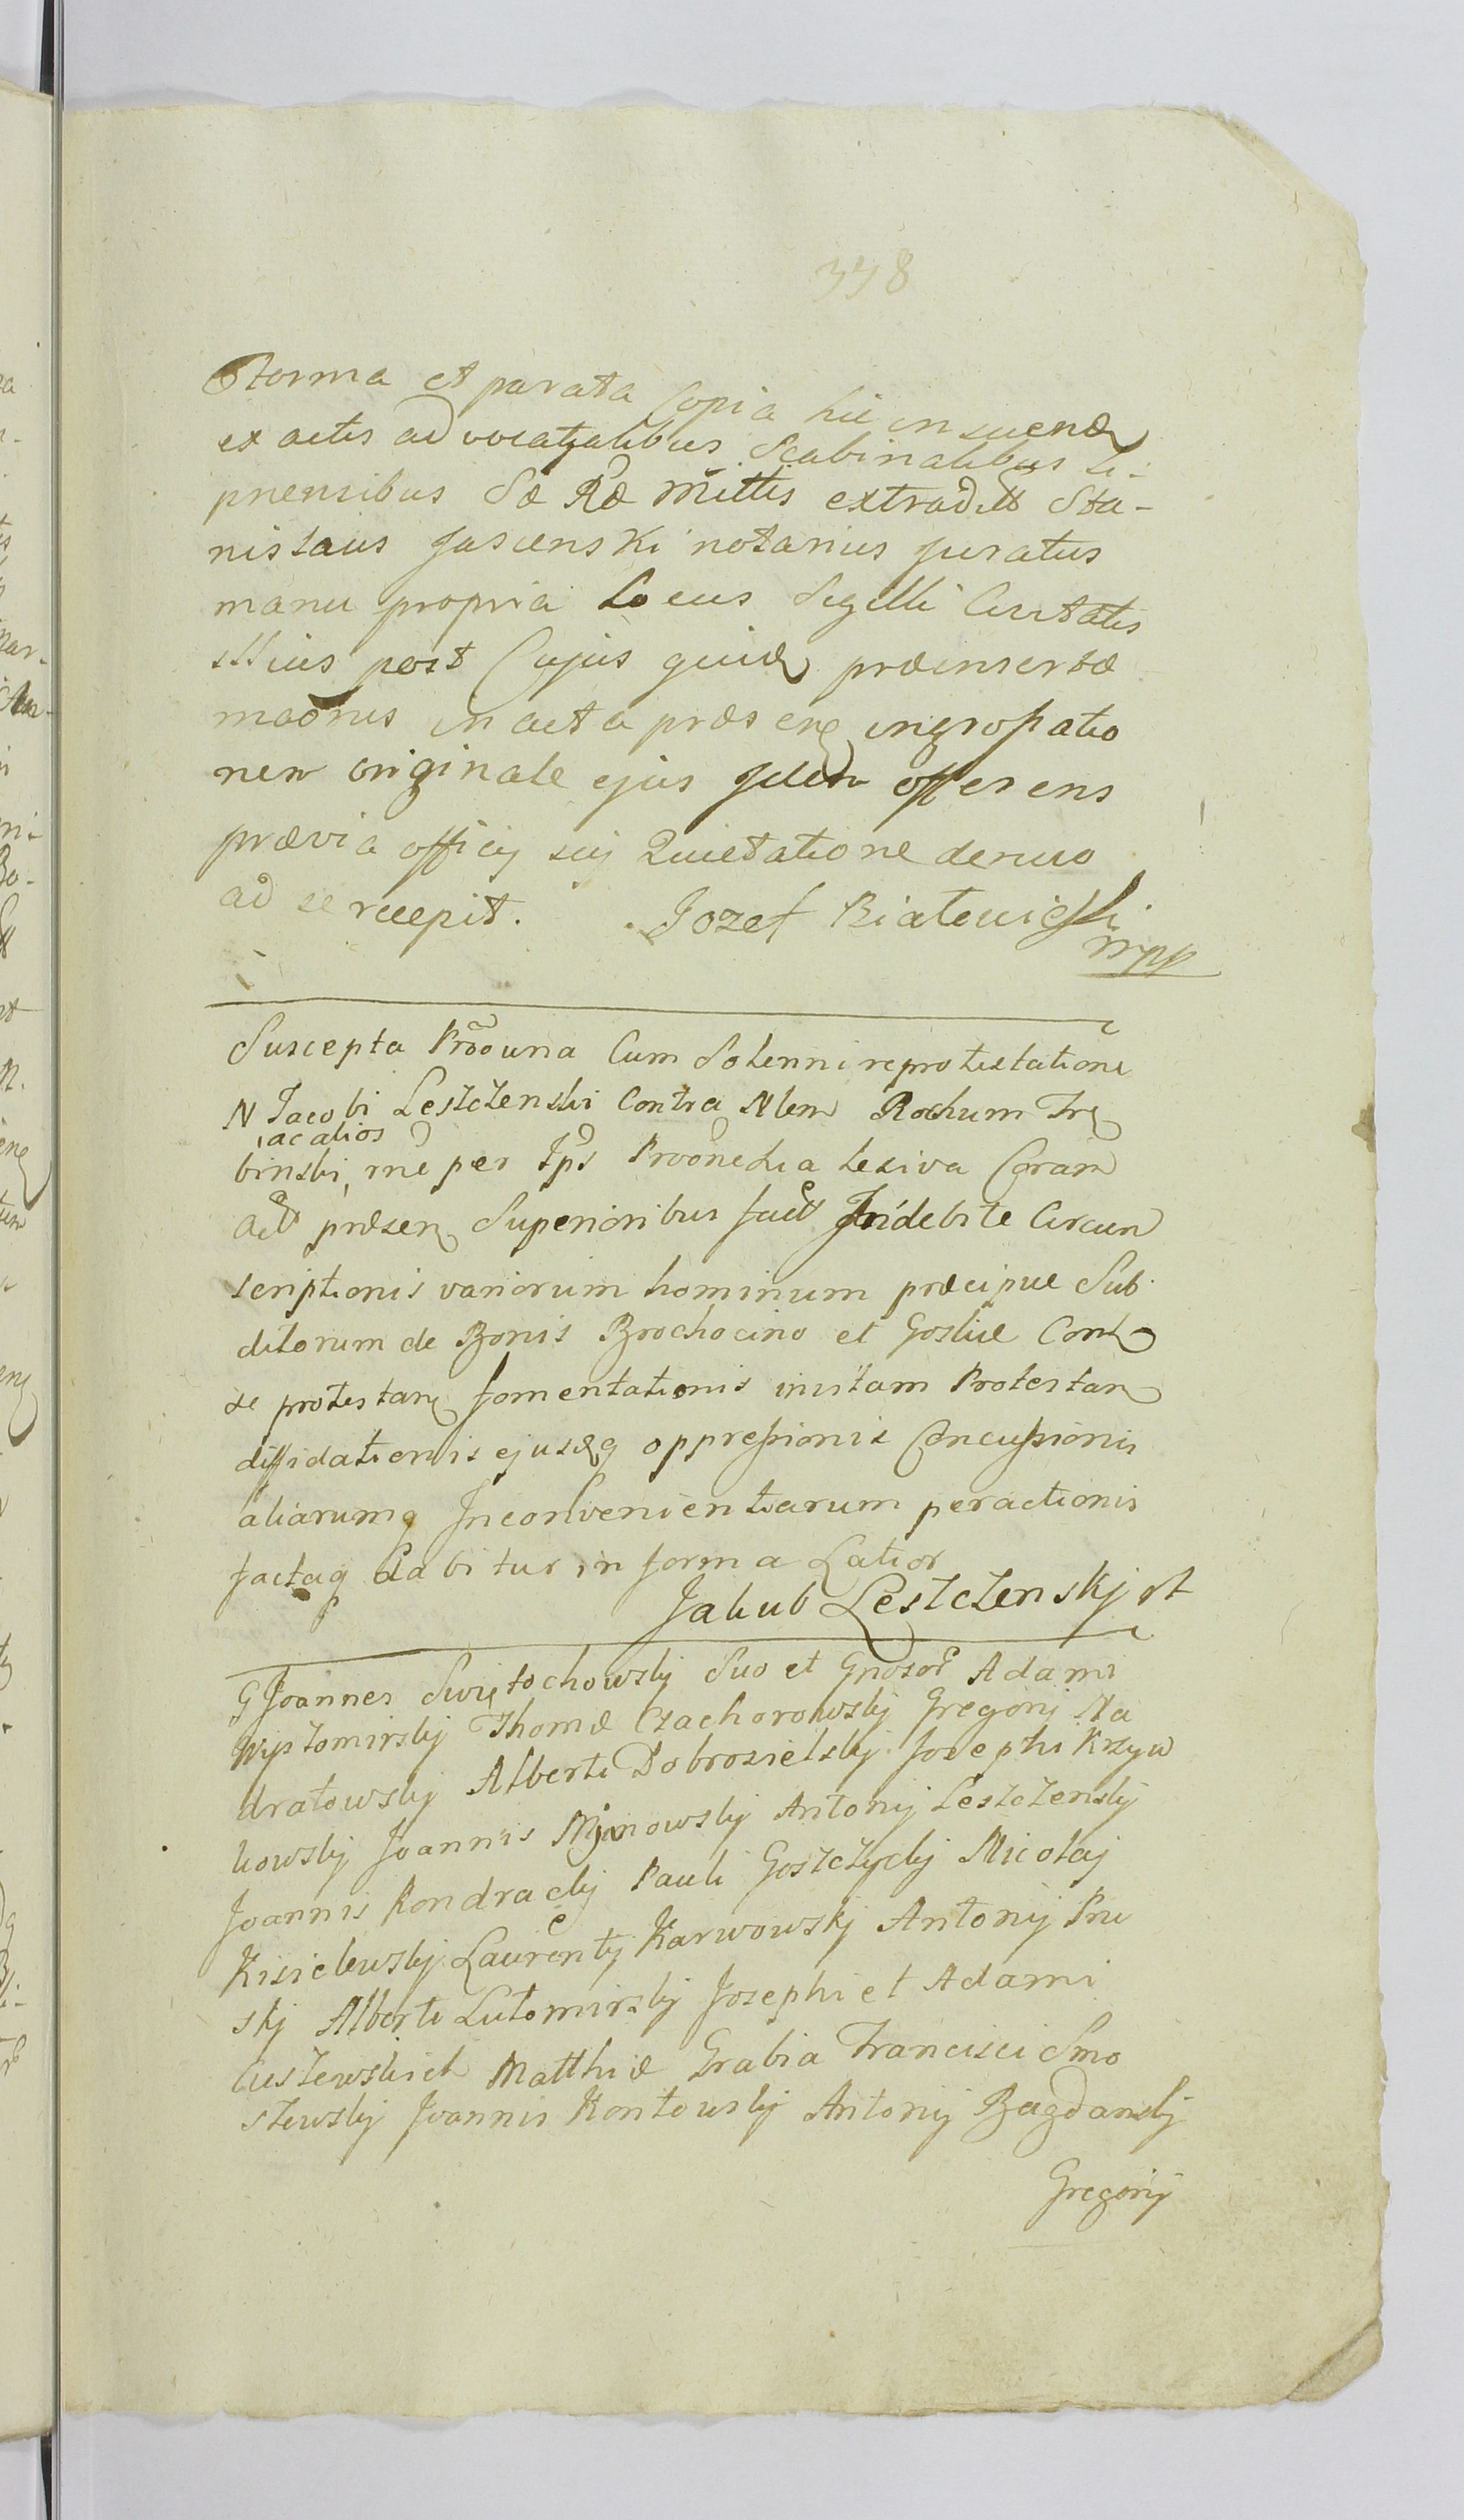 398
Storma et parata Copia hic in suend
ex actis advocatialibus Scabinalibus Li-
pnensibus Sæ Ræ Mittis extradit Sta-
nislaus Jasienski notarius juratus
manu propria Locus Sigilli Civitatis
illius post Cujus quid præinsertæ
maonis in acta præsen ingrossatio
nem originale ejus Idem offerens
prævia officij sui Quietatione denuo
ad se recepit. Jozef Białowieski
mpp
Suscepta Proouna Cum Solenni reprotestatione
N Jacobi Leszczenski Contra Nlem Rochum Trę
ac alios
binski, me per Ips Proonedia leziva Coram
act præsen Superioribus fact Indebite Circum
scriptionis variorum hominum præcipue Sub
ditorum de Bonis Brochocino et Goslice Cont
se protestan fomentationis invitam Protestan
diffidationis ejusdq oppressionis Concussionis
aliarumq Inconvenientiarum peractionis
factaq dabitur in forma Latior
Jakub Leszczenskj rt
G Joannes Swiętochowskij Suo et Gnosor Adami
Wyszomirskij Thomæ Czachorowskij Gregorij Na
dratowskij Alberti Dobrosielskij Josephi Krzyw
kowskij Joannis Mjonowskij Antonij Leszczenskij
Joannis Kondrackij Pauli Goszczyckij Nicolaj
Kisielewskij Laurenty Karwowskj Antonij Pru
skj Alberti Lutomirskij Josephi et Adami
Cuszewskich Matthiæ Grabia Francisci Smo
szewskij Joannis Kontowskij Antonij Bagdanskij
Gregorij